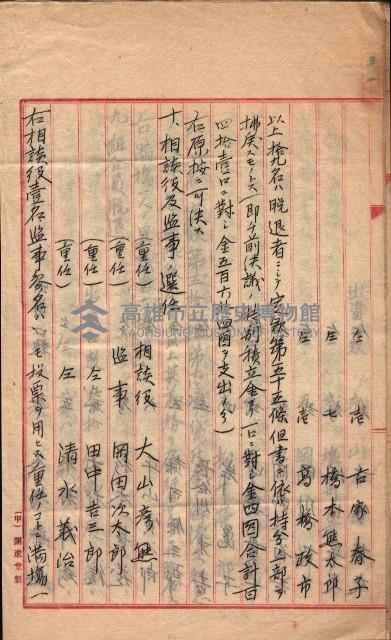 仝 壱 古家春子
仝 七 橋本熊太郎
仝 壱 高橋政市
以上拾九名ハ脱退者ニシテ定款第五十五條但書ニ依リ持分全部ヲ
拂戻スモノトス(即チ前決議ノ特別積立金ヲ一口ニ對シ金四圓合計百
四拾壱口ニ對シ金五百六十四圓ヲ支出ノ分)
右原按ニ可決ス
十、相談役及監事ノ選任
(重任) 相談役 大山彦熊
(重任) 監事 岡田次太郎
(重任) 仝 田中吉三郎
(重任) 仝 清水義治
右相談役壹名監事参名ハ何レモ投票ヲ用ヒス重任ノコトニ満場一
高雄市立歷史博物館
KAOHSIUNG MUSEUM OF HISTORY
(甲)
開進堂製